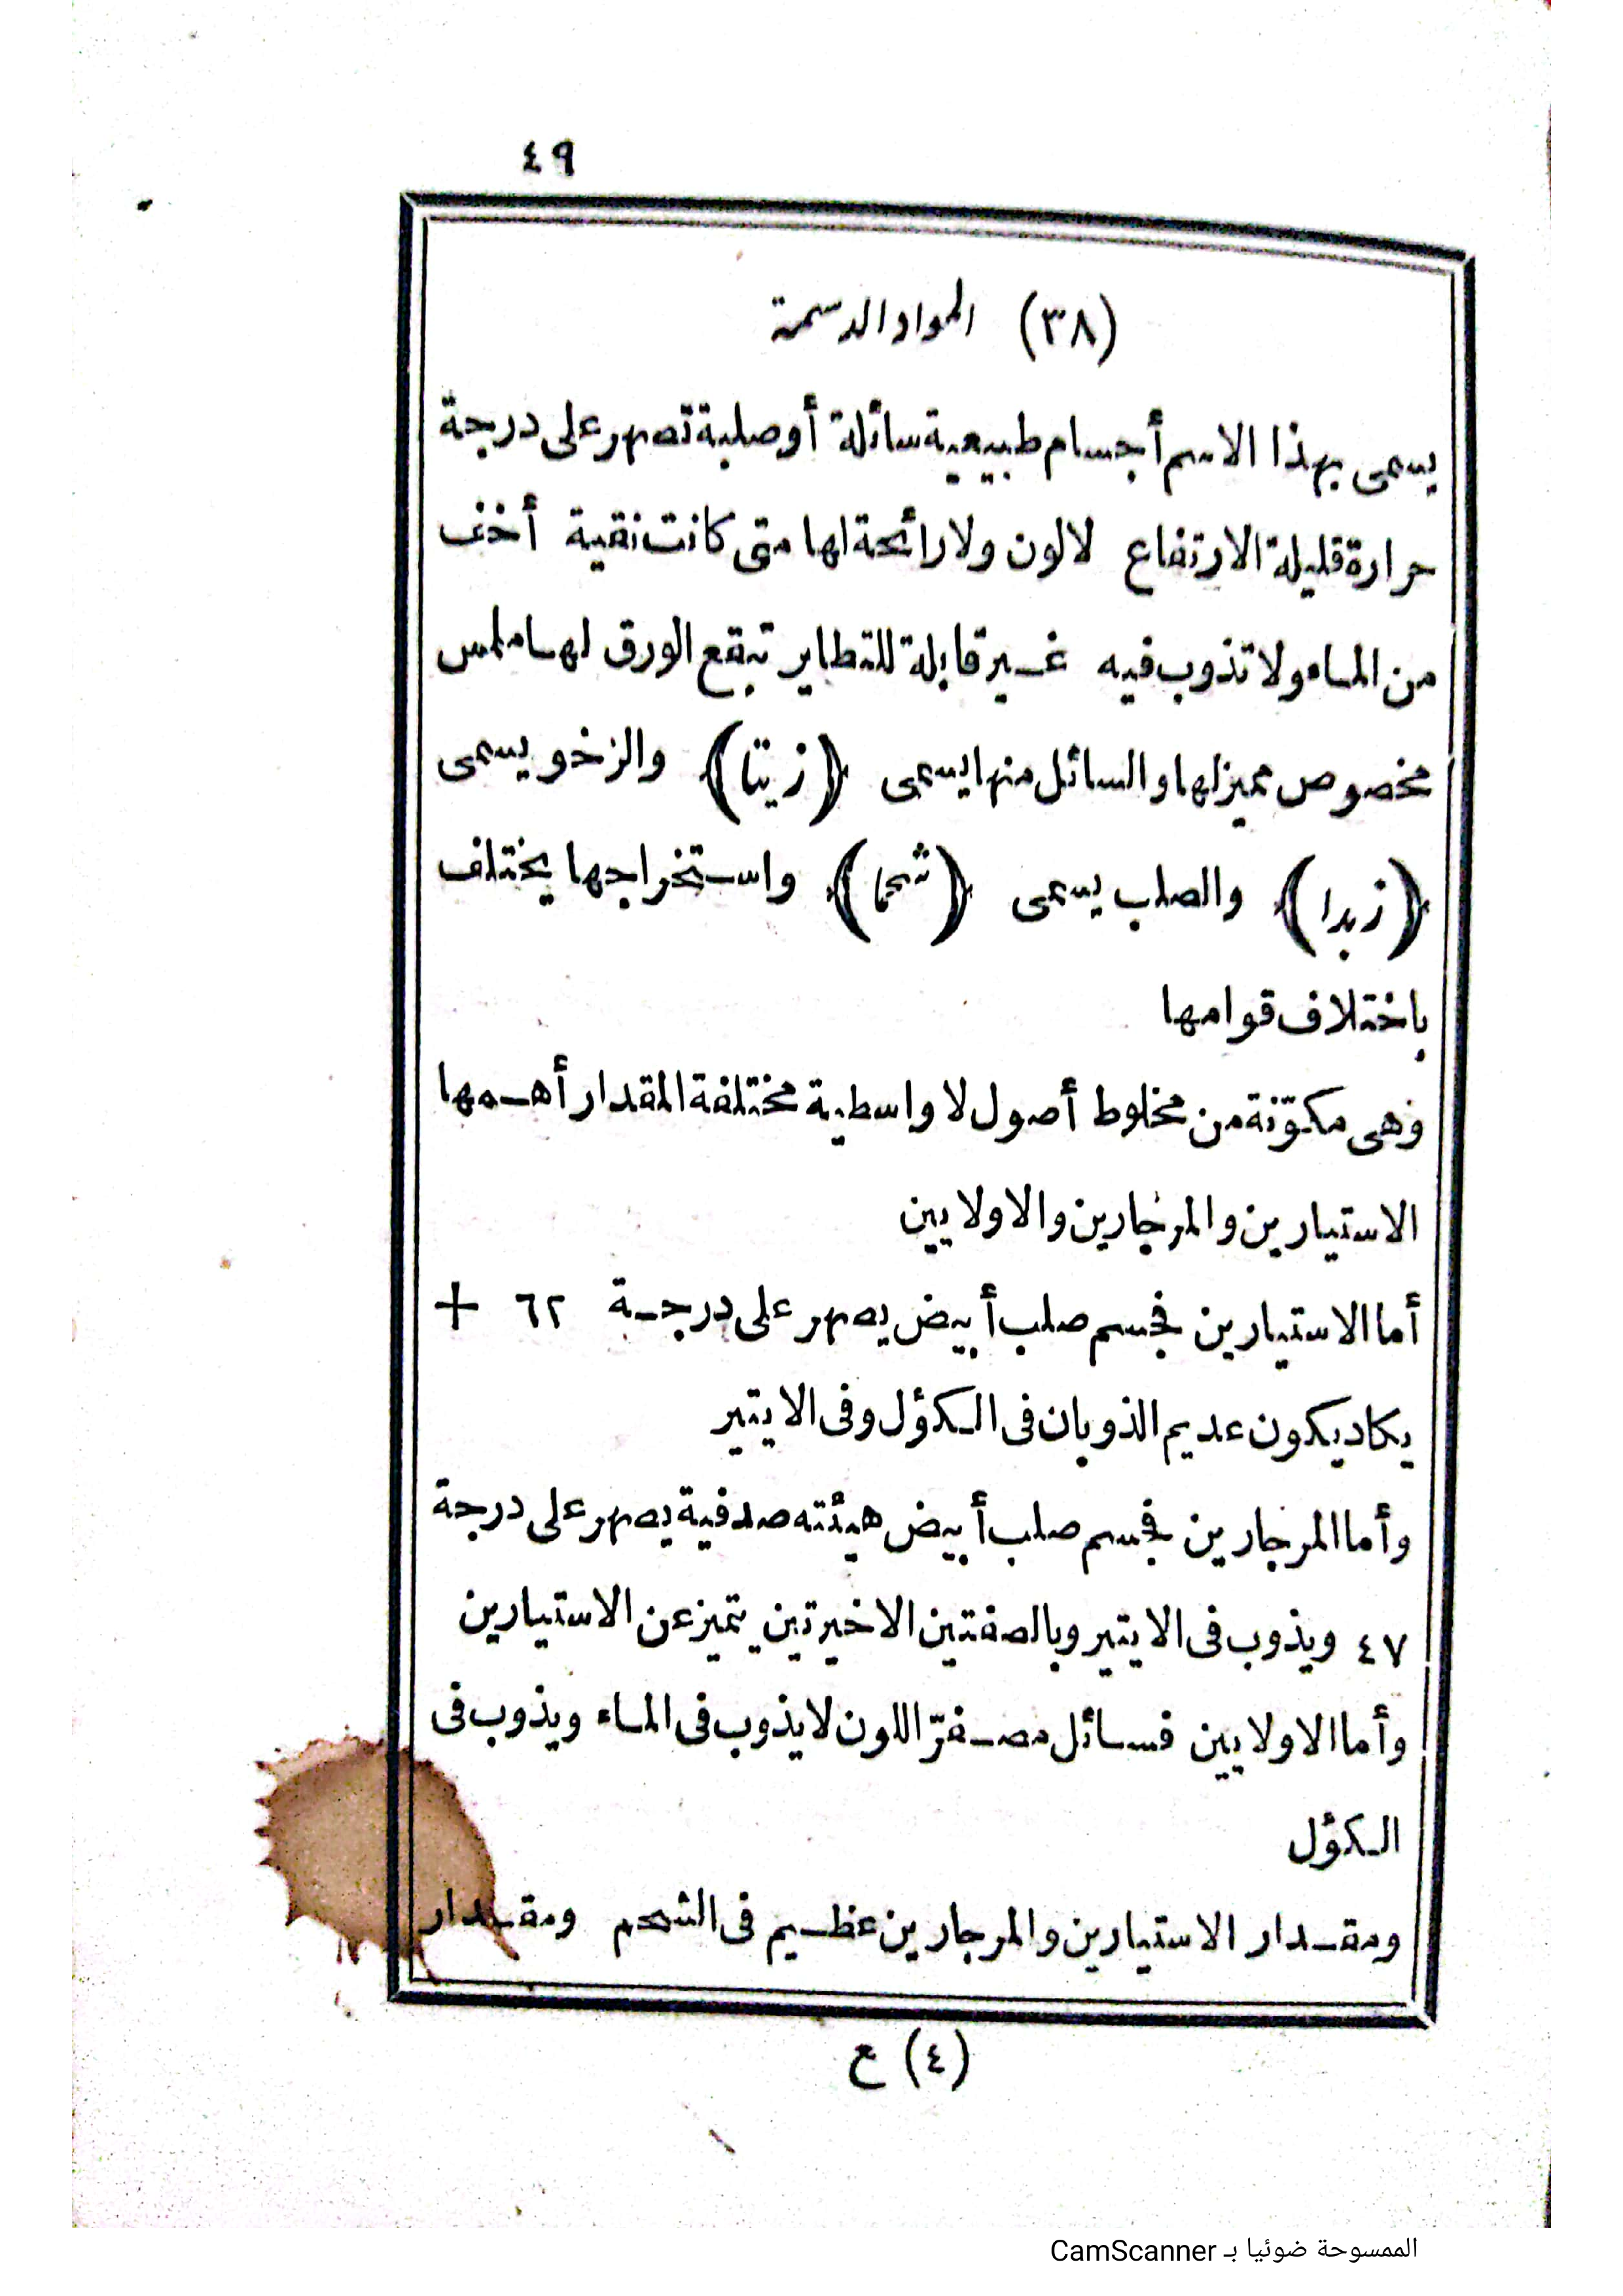 ٤٩
(٣٨) المواد الدسمة
يسمى بهذا الاسم أجسام طبيعية سائلة أو صلبة تصهر على درجة
حرارة قليلة الارتفاع لالون ولا رائحة لها متى كانت نقية أخف
من الماء ولا تذوب فيه غير قابلة للتطاير تبقع الورق لها ملمس
مخصوص مميز لها والسائل منها يسمى ﴿زيتا﴾ والرخو يسمى
﴿زبدا﴾ والصلب يسمى ﴿شحما﴾ واستخراجها يختلف
باختلاف قوامها
وهى مكوّنة من مخلوط أصول لا واسطية مختلفة المقدار أهمها
الاستيارين والمرجارين والاولايين
أما الاستيارين فجسم صلب أبيض يصهر على درجة ٦٢ +
يكاد يكون عديم الذوبان فى الكؤل وفى الايتير
وأما المرجارين فجسم صلب أبيض هيئته صدفية يصهر على درجة
٤٧ ويذوب فى الايتير وبالصفتين الاخيرتين يتميز عن الاستيارين
وأما الاولايين فسائل مصفرّ اللون لا يذوب فى الماء ويذوب فى
الكؤل
ومقدار الاستيارين والمرجارين عظيم فى الشحم ومقدار
(٤) ع
الممسوحة ضوئيا بـ CamScanner